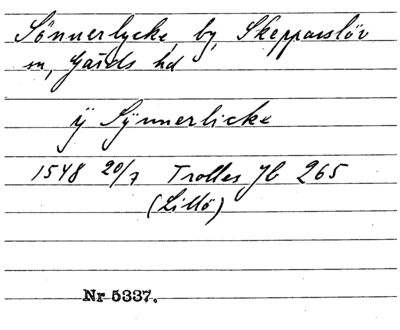 Sönnerlycke by, Skepparslöv
sn, Gärds hd
ÿ Sÿnnerlicke
1548 20/7 Trolles Jb 265
(Lillö)
Nr 5337.